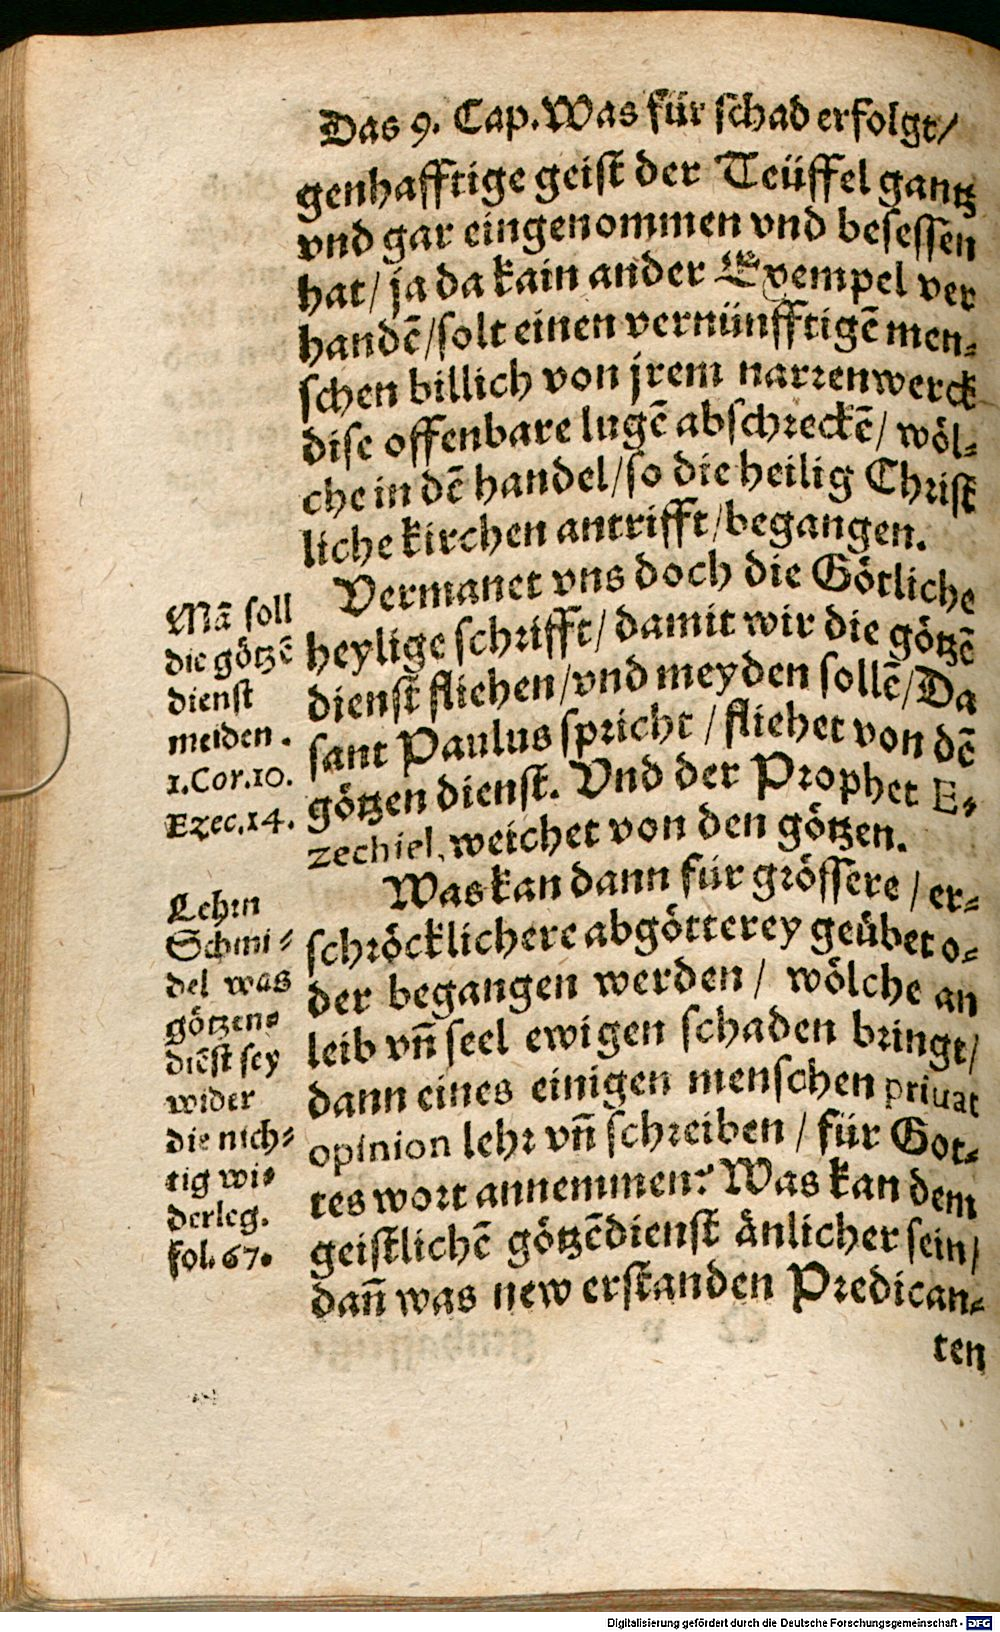 Das 9. Cap. Was für schad erfolgt/
genhafftige geist der Teüffel gantz
vnd gar eingenommen vnd besessen
hat/ ja da kain ander Exempel ver
handē/solt einen vernünfftigē men⸗
schen billich von jrem narrenwerck
dise offenbare lugē abschreckē/ wöl⸗
che in dē handel/so die heilig Christ
liche kirchen antrifft/begangen.
Vermanet vns doch die Götliche
heylige schrifft/ damit wir die götzē
dienst fliehen/vnd meyden sollē/Da
sant Paulus spricht / fliehet von dē
götzen dienst. Vnd der Prophet E⸗
zechiel, weichet von den götzen.
Was kan dann für grössere / er⸗
schröcklichere abgötterey geübet o⸗
der begangen werden/ wölche an
leib vn̄ seel ewigen schaden bringt/
dann eines einigen menschen priuat
opinion lehr vn̄ schreiben / für Got⸗
tes wort annemmen? Was kan dem
geistlichē götzēdienst änlicher sein/
dan̄ was new erstanden Predican⸗
ten
Mā soll
die götzē
dienst
meiden.
1.Cor.10.
Ezec.14.
Lehrn
Schmi⸗
del was
götzen⸗
diēst sey
wider
die nich⸗
tig wi⸗
derleg.
fol. 67.
Digitalisierung gefördert durch die Deutsche Forschungsgemeinschaft - DFG